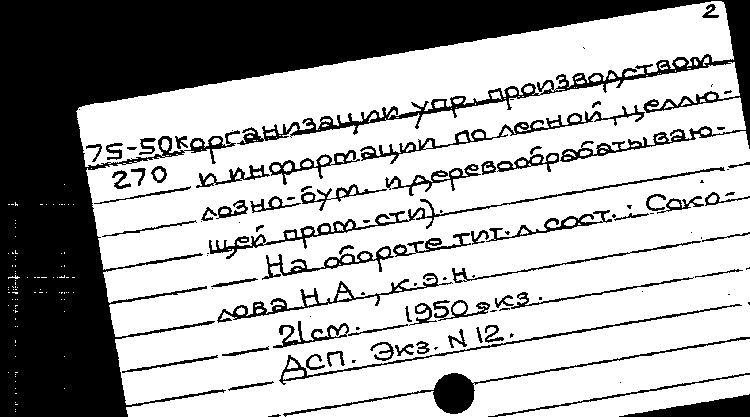 2
75-50к организации упр. производством
270 и информации по лесной, целлю-
лозно-бум. и деревообрабатываю-
щей пром-сти).
На обороте тит. л. сост.: Соко-
лова Н.А., к.э.н.
21 см. 1950 экз.
ДСП. Экз. N 12.